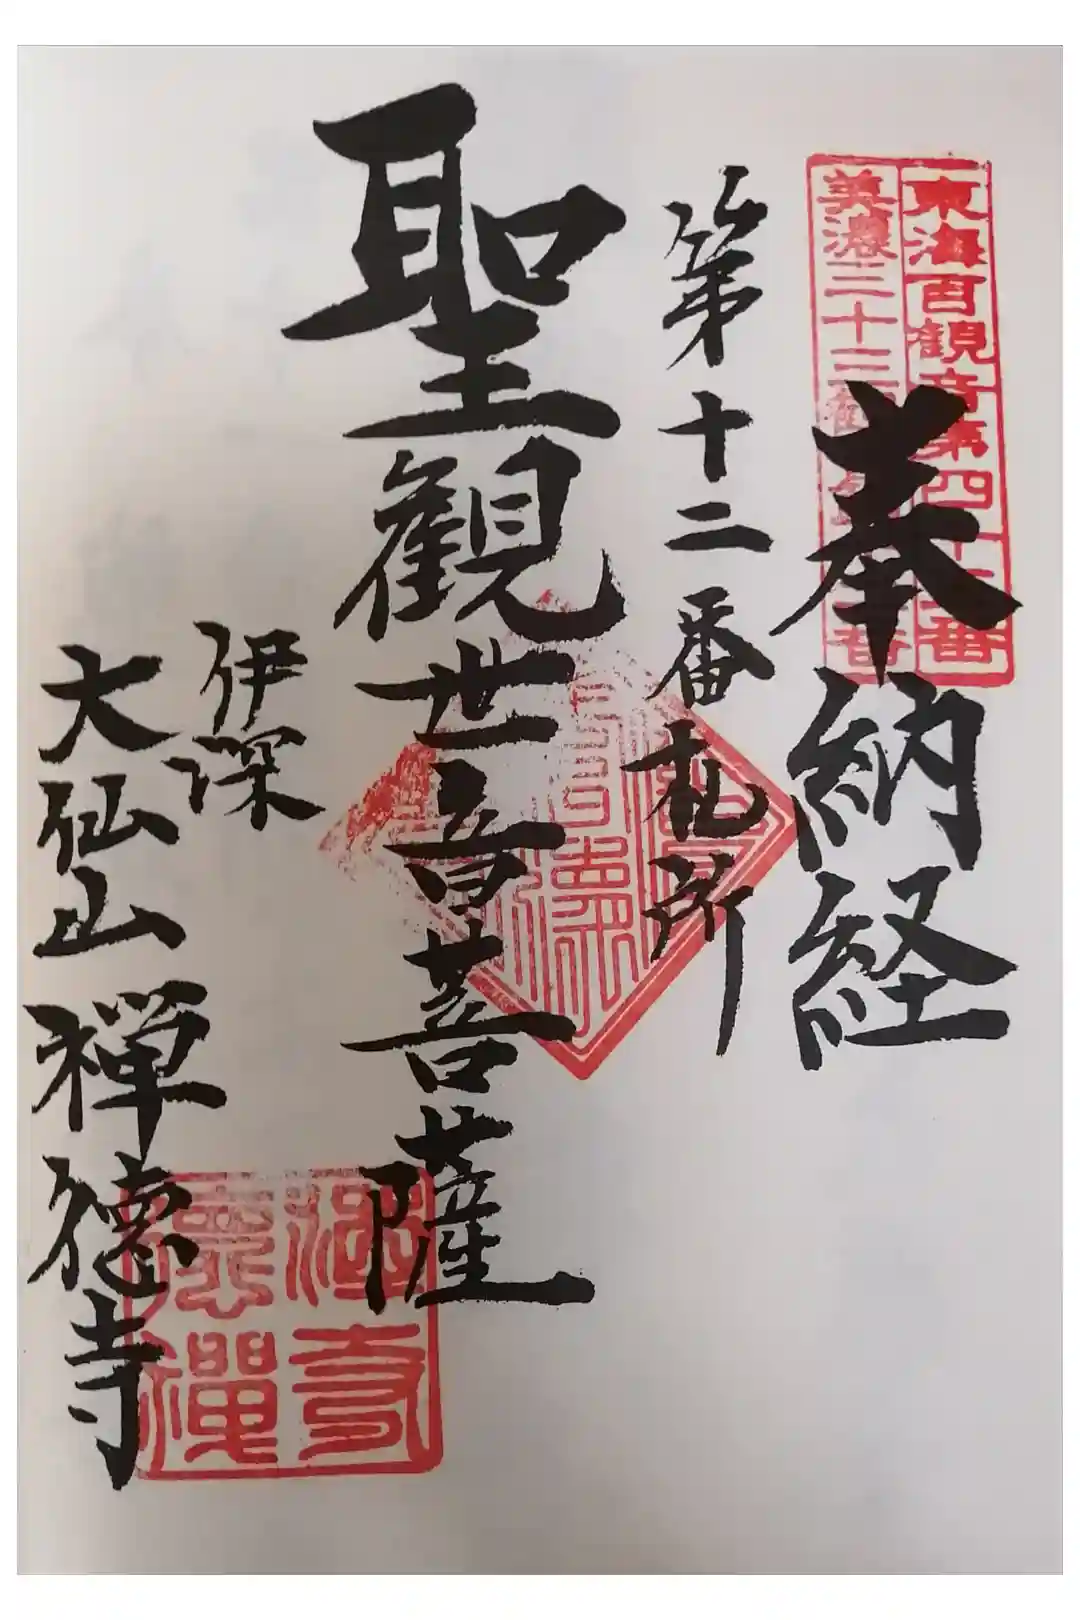 東海百観音第四十五番
美濃三十三観音第十二番
奉納経
第十二番札所
聖観世音菩薩
伊深
大仙山禅徳寺